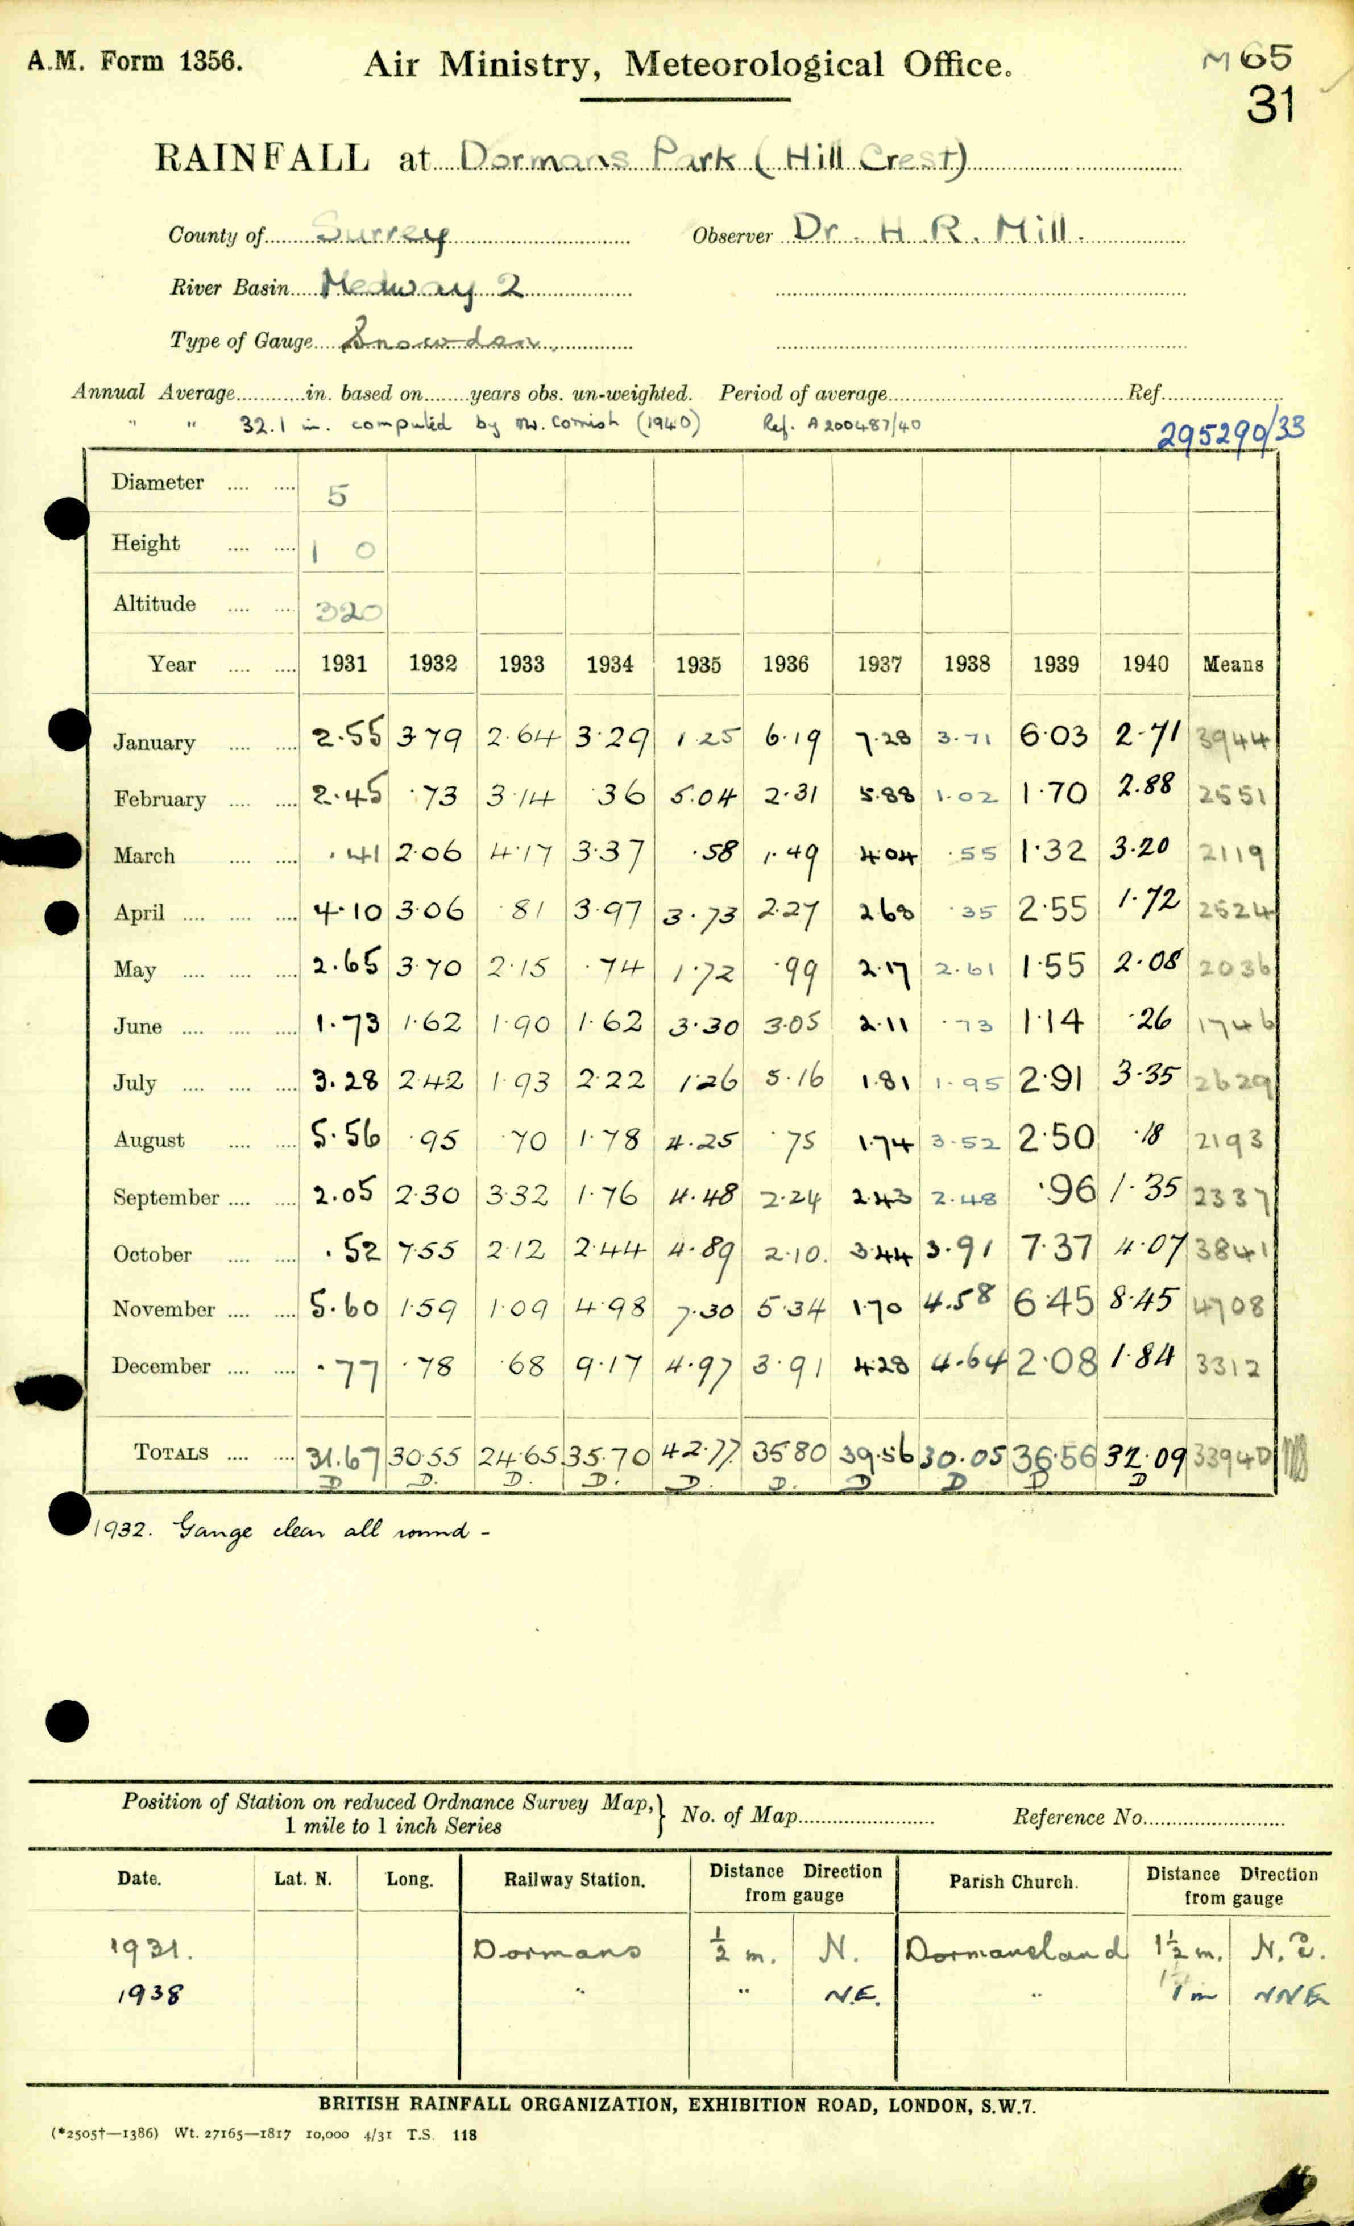 A.M. Form 1356. Air Ministry, Meteorological Office. M 65
31
RAINFALL at Dormans Park (Hill Crest)
County of Surrey Observer Dr. H. R. Mill.
River Basin Medway 2
Type of Gauge Snowdon
Annual Average in. based on years obs. un-weighted. Period of average Ref.
" " 32.1 in. computed by Mr. Cornish (1940) Ref. A200487/40 295290/33
Diameter 5
Height 1 0
Altitude 320
Year 1931 1932 1933 1934 1935 1936 1937 1938 1939 1940 Means
January 2.55 3.79 2.64 3.29 1.25 6.19 7.28 3.71 6.03 2.71 3944
February 2.45 .73 3.14 .36 5.04 2.31 5.88 1.02 1.70 2.88 2551
March .41 2.06 4.17 3.37 .58 1.49 4.04 .55 1.32 3.20 2119
April 4.10 3.06 .81 3.97 3.73 2.27 2.68 .35 2.55 1.72 2524
May 2.65 3.70 2.15 .74 1.72 .99 2.17 2.61 1.55 2.08 2036
June 1.73 1.62 1.90 1.62 3.30 3.05 2.11 .73 1.14 .26 1746
July 3.28 2.42 1.93 2.22 1.26 5.16 1.81 1.95 2.91 3.35 2629
August 5.56 .95 .70 1.78 4.25 .75 1.74 3.52 2.50 .18 2193
September 2.05 2.30 3.32 1.76 4.48 2.24 2.43 2.48 .96 1.35 2337
October .52 7.55 2.12 2.44 4.89 2.10. 3.44 3.91 7.37 4.07 3841
November 5.60 1.59 1.09 4.98 7.30 5.34 1.70 4.58 6.45 8.45 4708
December .77 .78 .68 9.17 4.97 3.91 4.28 4.64 2.08 1.84 3312
TOTALS 31.67 30.55 24.65 35.70 42.77 35.80 39.56 30.05 36.56 32.09 33940
D D. D. D. D. D. D D D D
1932. Gauge clear all round -
Position of Station on reduced Ordnance Survey Map, } No. of Map Reference No.
1 mile to 1 inch Series
Date. Lat. N. Long. Railway Station. Distance Direction Parish Church. Distance Direction
from gauge from gauge
1931. Dormans ½ m. N. Dormansland 1½ m. N.E.
1938 " " N.E. " 1 m NNE
BRITISH RAINFALL ORGANIZATION, EXHIBITION ROAD, LONDON, S.W.7.
(*2505†—1386) Wt. 27165—1817 10,000 4/31 T.S. 118